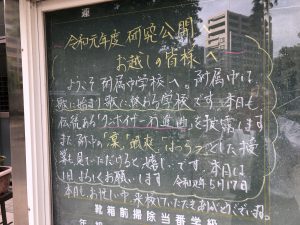 令和元年度 研究公開へ
お越しの皆様へ
ようこそ附属中学校へ。附属中は
歌に始まり歌に終わる学校です。本日も
伝統ある「タンホイザー行進曲」を披露します
また附中の「凛」「颯爽」はつらつとした授
業も見ていただけると嬉しいです。本日は
1日よろしくお願いします 令和元年5月17日
本日も、お忙しい中、来校していただきありがとうございます。
靴箱前掃除当番学級
年 組